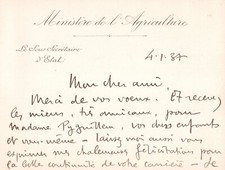 Ministère de l'Agriculture
Le Sous Secrétaire
d'Etat
4.1.37
Mon cher ami,
Merci de vos voeux. Et recevez
les miens, très amicaux, pour
Madame, vos chers enfants
et vous-même - laissez moi aussi vous
exprimer mes chaleureuses félicitations pour
la belle continuité de votre carrière - Je